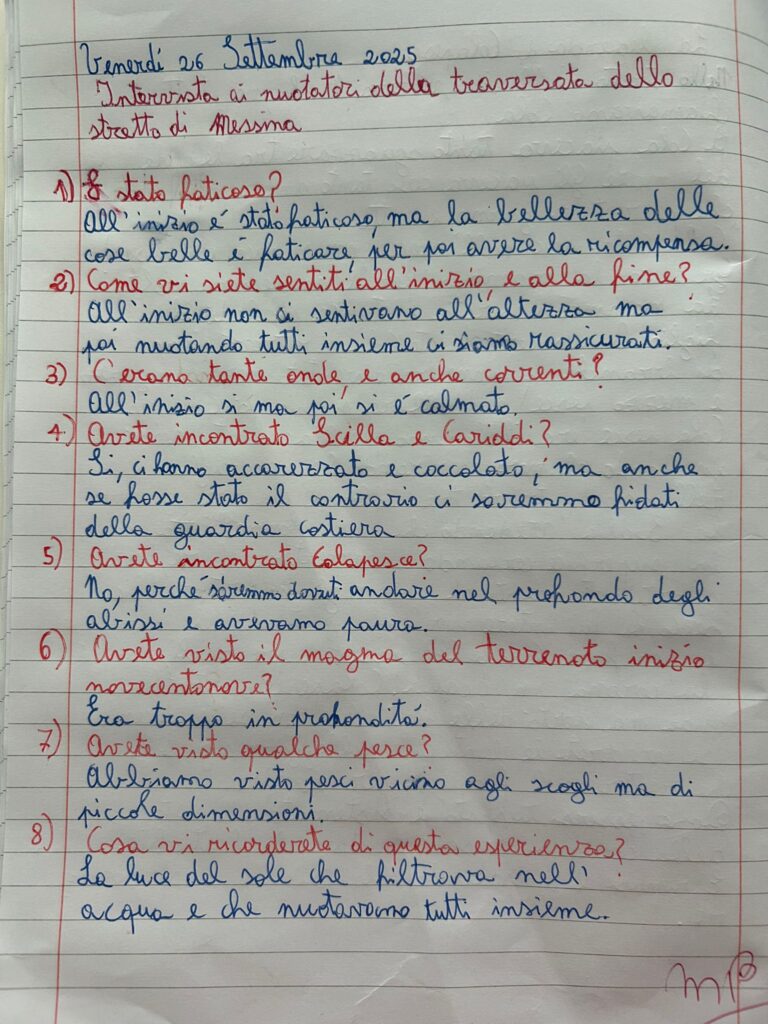 Venerdí 26 Settembre 2025
Intervista ai nuotatori della traversata dello
stretto di Messina
1) É stato faticoso?
All'inizio é stato faticoso, ma la bellezza delle
cose belle é faticare, per poi avere la ricompensa.
2) Come vi siete sentiti all'inizio, e alla fine?
All'inizio non ci sentivano all'altezza ma
poi nuotando tutti insieme ci siamo rassicurati.
3) C'erano tante onde, e anche correnti?
All'inizio si ma poi si é calmato.
4) Avete incontrato Scilla e Cariddi?
Si, ci hanno accarezzato e coccolato, ma anche
se fosse stato il contrario ci saremmo fidati
della guardia costiera
5) Avete incontrato Colapesce?
No, perché saremmo dovuti andare nel profondo degli
abissi e avevamo paura.
6) Avete visto il magma del terremoto inizio
novecentonove?
Era troppo in profonditá.
7) Avete visto qualche pesce?
Abbiamo visto pesci vicino agli scogli ma di
piccole dimensioni.
8) Cosa vi ricorderete di questa esperienza?
La luce del sole che filtrava nell'
acqua e che nuotavamo tutti insieme.